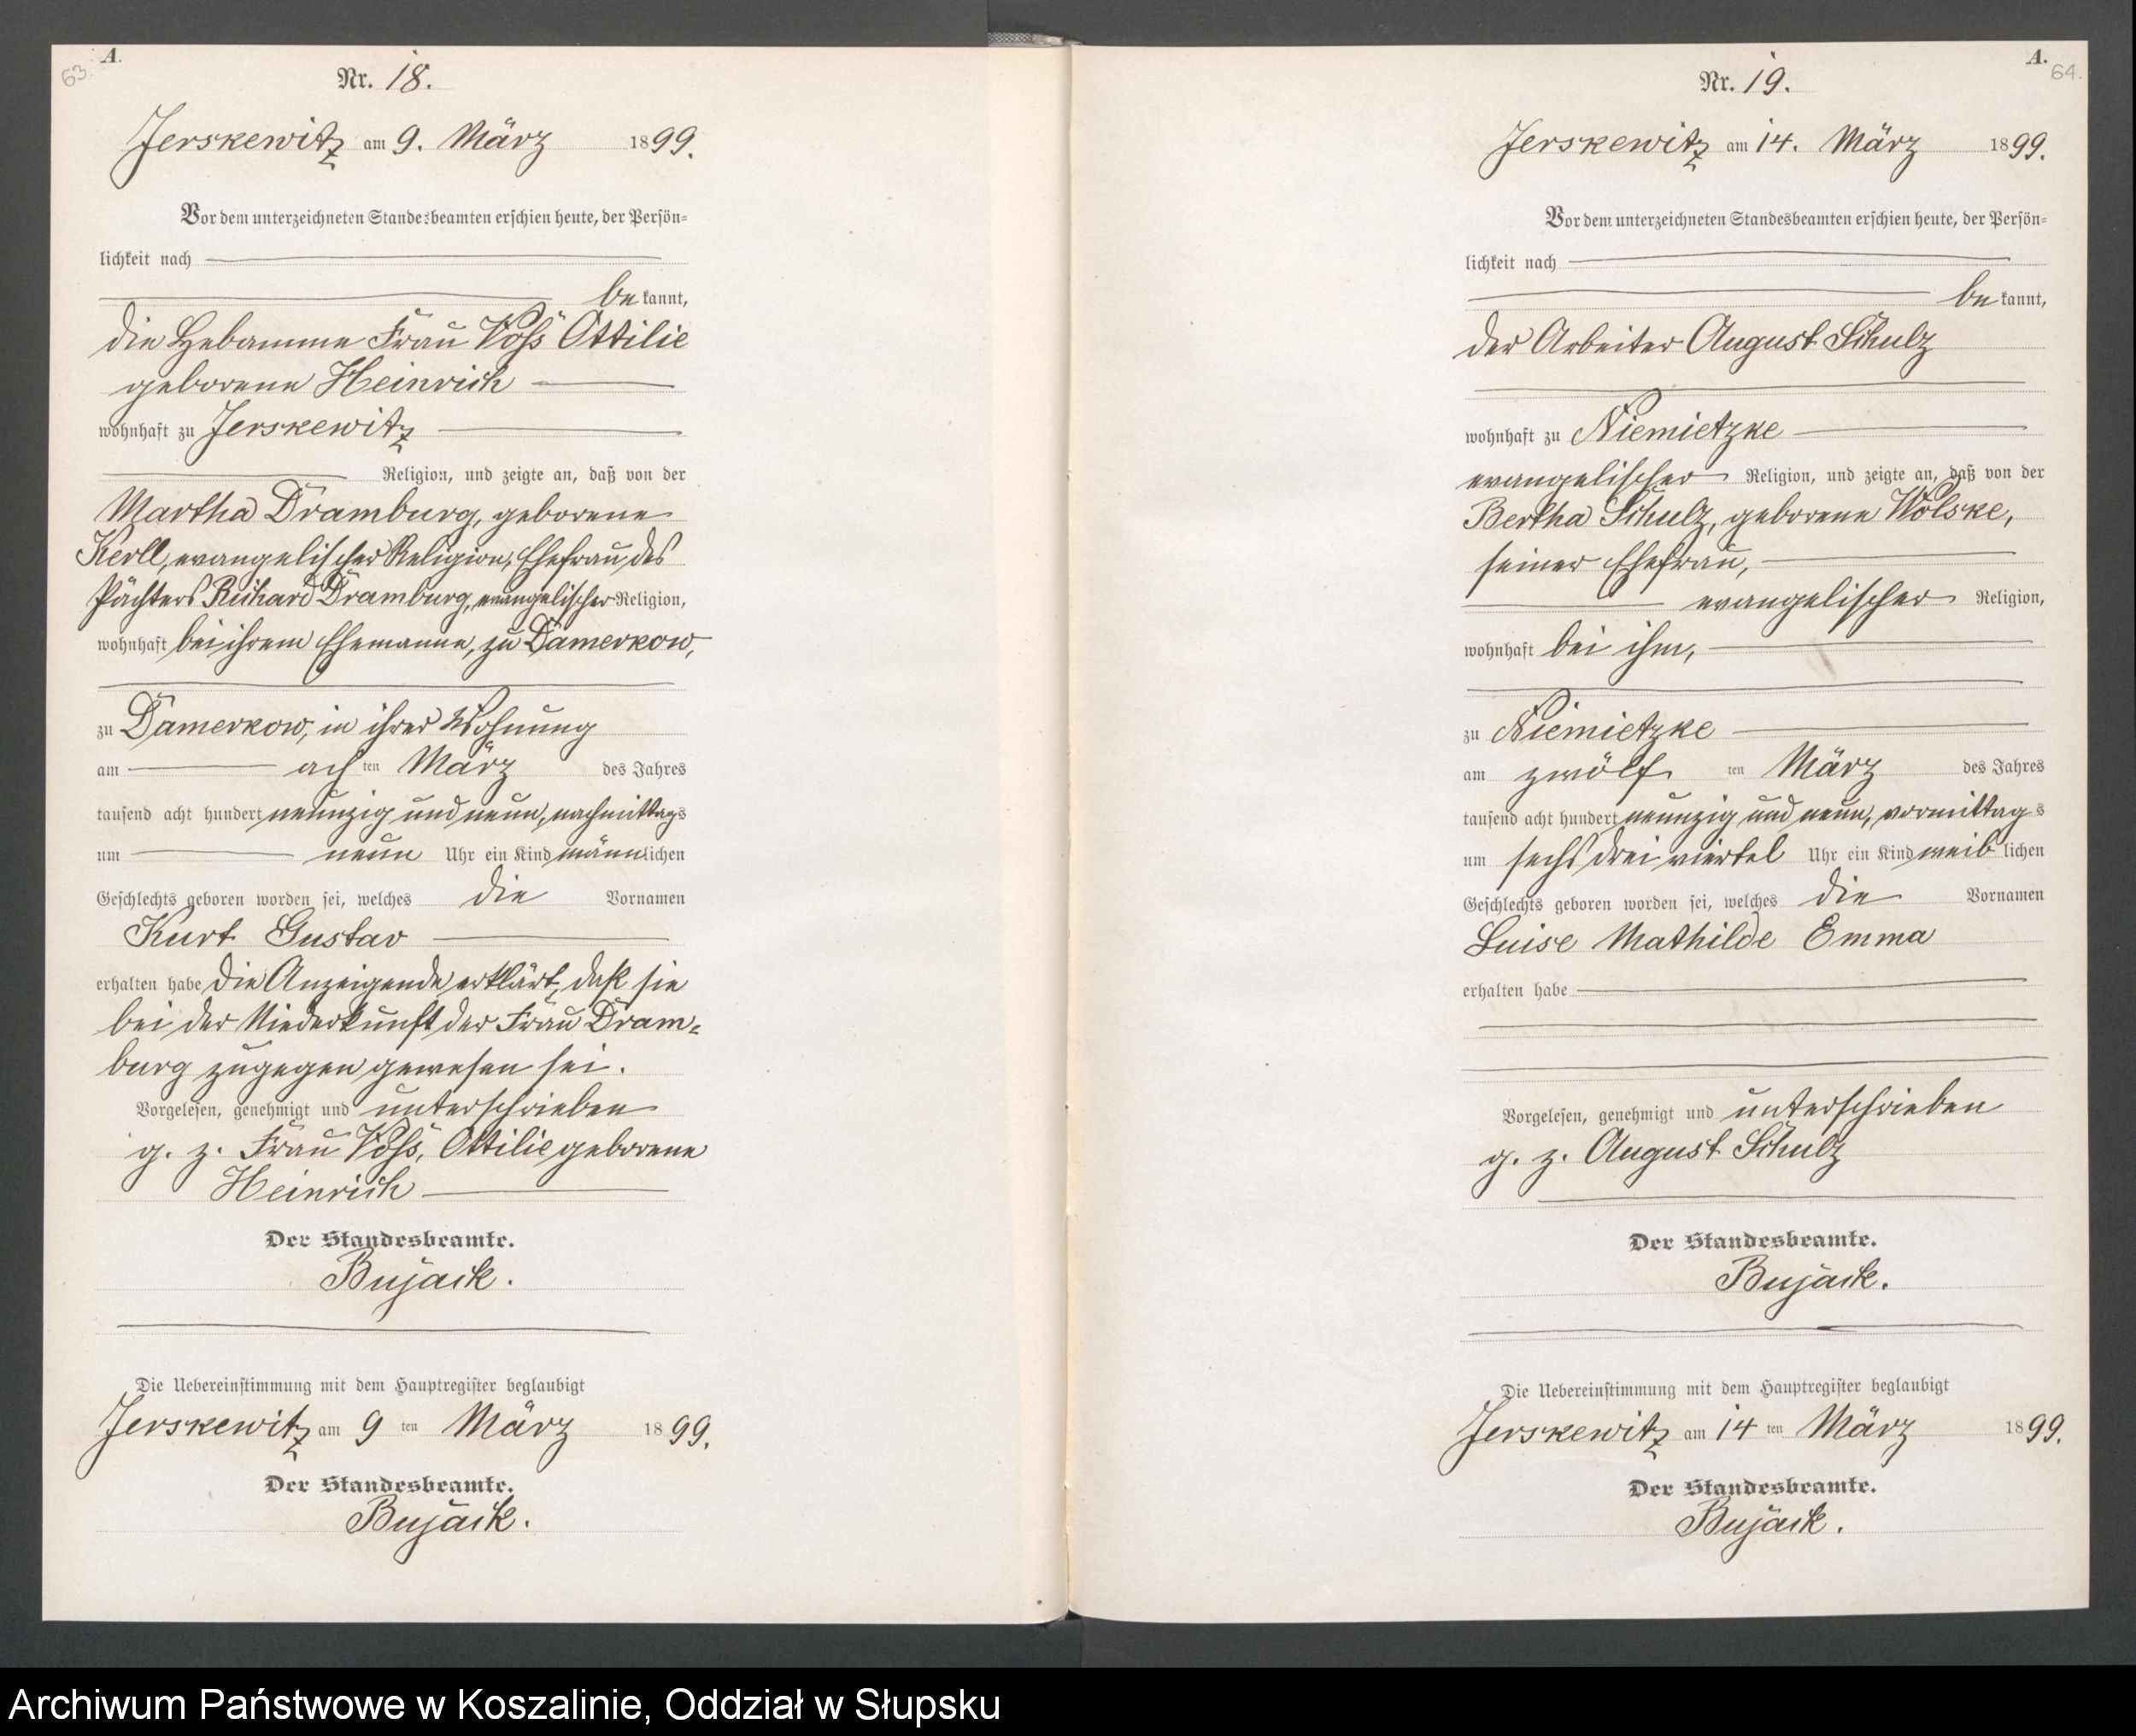 63.
A.
Nr. 18.
Jerskewitz am 9. März 1899.
Vor dem unterzeichneten Standesbeamten erschien heute, der Persön-
lichkeit nach
be kannt,
die Hebamme Frau Voß Ottilie
geborene Heinrich
wohnhaft zu Jerskewitz
Religion, und zeigte an, daß von der
Martha Dramburg, geborene
Kerll, evangelischer Religion, Ehefrau des
Pächters Richard Dramburg, evangelischer Religion,
wohnhaft bei ihrem Ehemanne, zu Damerkow,
zu Damerkow, in ihrer Wohnung
am ach ten März des Jahres
tausend acht hundert neunzig und neun, nachmittags
um neun Uhr ein Kind männlichen
Geschlechts geboren worden sei, welches die Vornamen
Kurt Gustav
erhalten habe die Anzeigende erklärt, daß sie
bei der Niederkunft der Frau Dram-
burg zugegen gewesen sei.
Vorgelesen, genehmigt und unterschrieben
g. z. Frau Voß, Ottilie geborene
Heinrich
Der Standesbeamte.
Bujack.
Die Uebereinstimmung mit dem Hauptregister beglaubigt
Jerskewitz am 9 ten März 1899.
Der Standesbeamte.
Bujack.
A.
64.
Nr. 19.
Jerskewitz am 14. März 1899.
Vor dem unterzeichneten Standesbeamten erschien heute, der Persön-
lichkeit nach
be kannt,
der Arbeiter August Schulz
wohnhaft zu Niemietzke
evangelischer Religion, und zeigte an, daß von der
Bertha Schulz, geborene Wolske,
seiner Ehefrau,
evangelischer Religion,
wohnhaft bei ihm,
zu Niemietzke
am zwölf ten März des Jahres
tausend acht hundert neunzig und neun, vormittags
um sechs drei viertel Uhr ein Kind weib lichen
Geschlechts geboren worden sei, welches die Vornamen
Luise Mathilde Emma
erhalten habe
Vorgelesen, genehmigt und unterschrieben
g. z. August Schulz
Der Standesbeamte.
Bujack.
Die Uebereinstimmung mit dem Hauptregister beglaubigt
Jerskewitz am 14 ten März 1899.
Der Standesbeamte.
Bujack.
Archiwum Państwowe w Koszalinie, Oddział w Słupsku